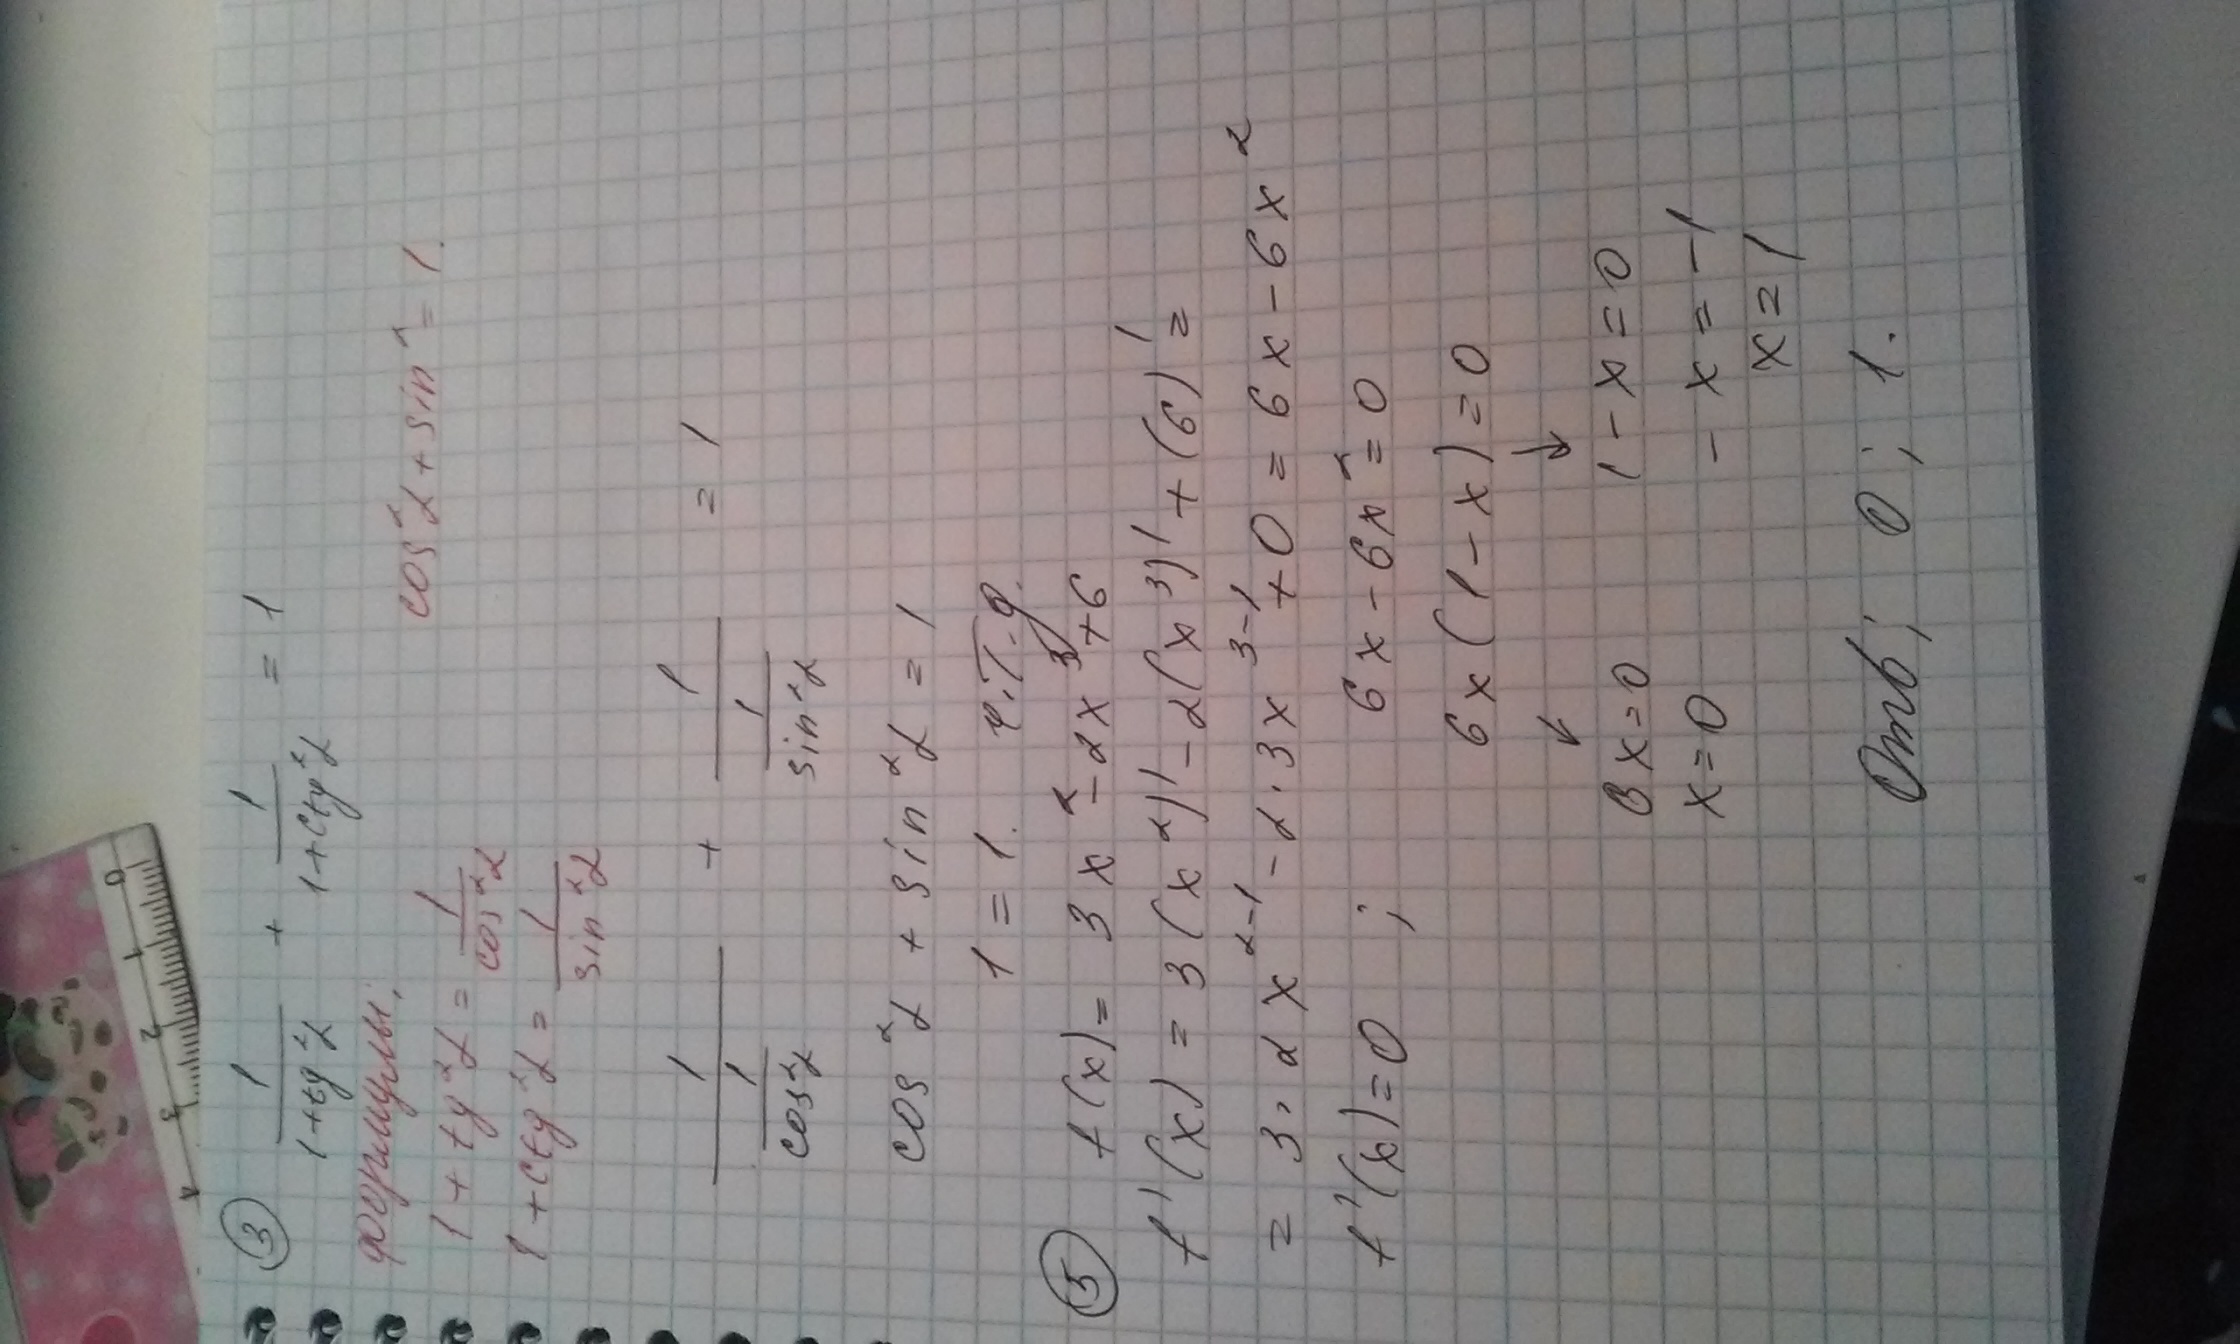 ③ 1/(1+tg²α) + 1/(1+ctg²α) = 1
формулы:
cos²α + sin² = 1.
1 + tg²α = 1/cos²α
1 + ctg²α = 1/sin²α
1/(1/cos²α) + 1/(1/sin²α) = 1
cos²α + sin²α = 1
1 = 1. ч.т.д.
⑤ f(x) = 3x² - 2x³ + 6
f'(x) = 3(x²)' - 2(x³)' + (6)' =
= 3·2x²⁻¹ - 2·3x³⁻¹ + 0 = 6x - 6x²
f'(x) = 0 ; 6x - 6x² = 0
6x(1 - x) = 0
↓ ↓
6x = 0 1 - x = 0
x = 0 - x = -1
x = 1
Отв; 0; 1.
0 1 2 3 4